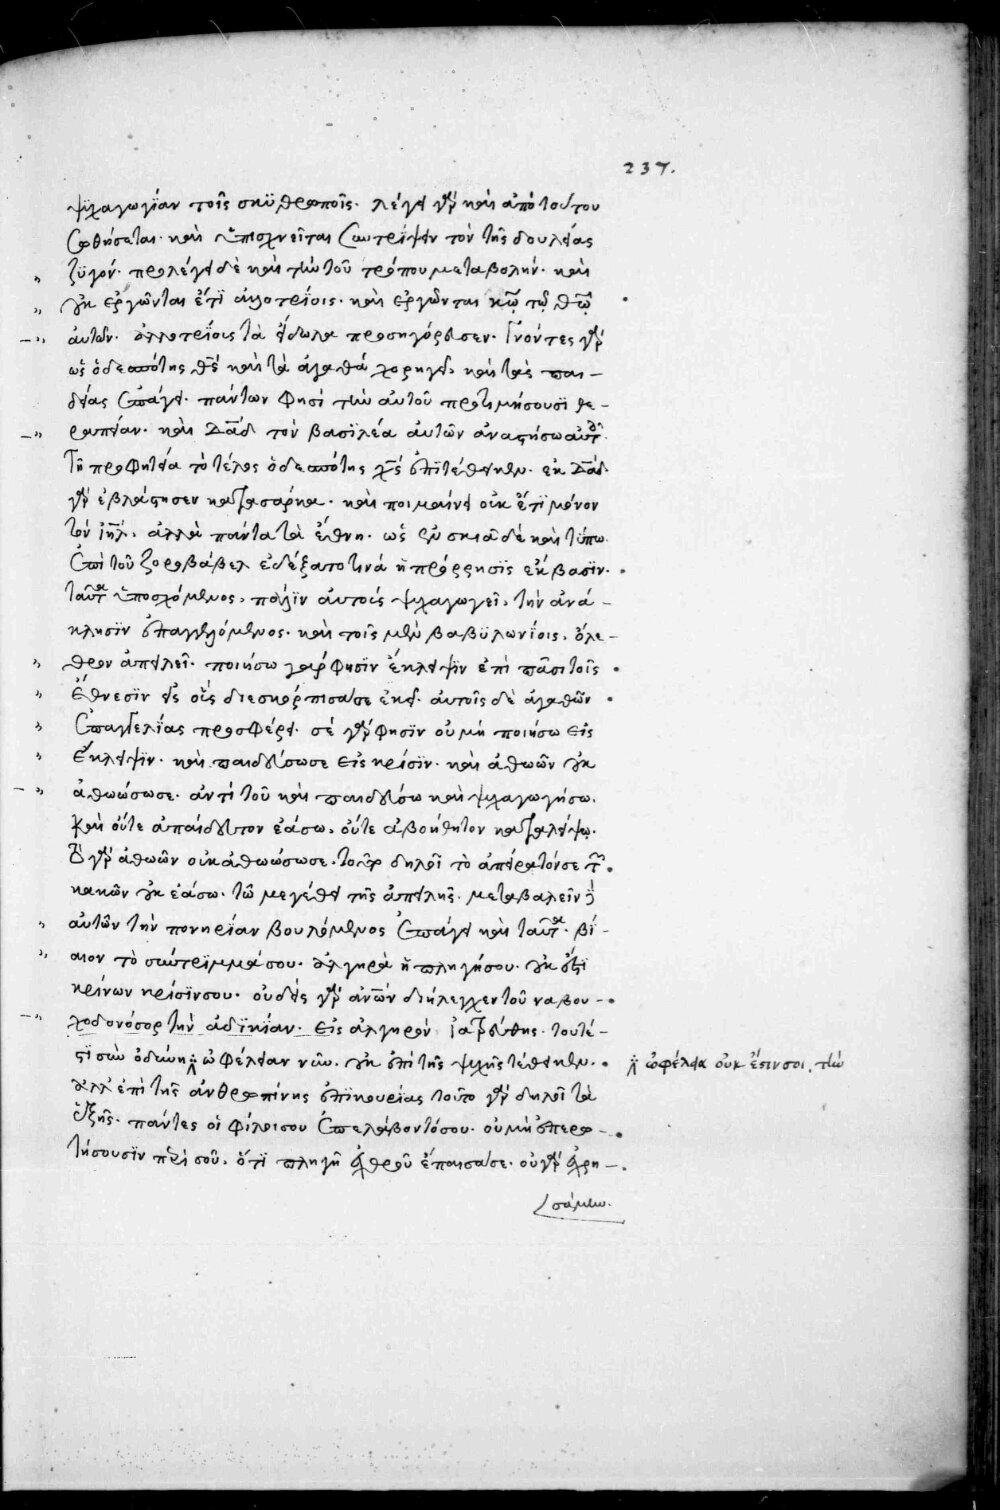 237.
ψϋχαγωγΐαν τοῖς σκϋθρωποῖς. λέγει γὰρ καὶ ἀπὸ τούτου
σωθήσεται. καὶ ὑπισχνεῖται συντρίψειν τὸν τῆς δουλείας
ζϋγόν. προλέγει δὲ καὶ τὴν τοῦ τρόπου μεταβολήν. καὶ
οὐκ ἐργῶνται ἔτϊ ἀλλοτρΐοις. καὶ ἐργῶνται κῶ τῶ θῶ
ἀυτῶν. ἀλλοτρΐοις τὰ εἴδωλα προσηγόρευσεν. γνόντες γὰρ
ὡς ὁ δεσπότης θς καὶ τὰ ἀγαθὰ χορηγεῖ, καὶ τὰς παι-
δείας ἐπάγει. πάντων φησὶ τὴν αὐτοῦ προτιμήσουσϊ θε-
ραπείαν. καὶ Δαδ τὸν βασιλέα ἀυτῶν ἀναστήσω αὐτοῖς.
τῆ προφητεία τὸ τέλος ὁ δεσπότης χς ἐπϊτέθεικεν. ἐκ Δαδ
γὰρ ἐβλάστησεν κατὰ σάρκα. καὶ ποιμαίνει οὐκ ἔτϊ μόνον
τὸν ιηλ, ἀλλὰ πάντα τὰ ἔθνη. ὡς ἐν σκιᾶ δὲ καὶ τύπω
ἐπὶ τοῦ ζοροβάβελ ἐδέξατο τινὰ ἡ πρόρρησϊς ἐκβασϊν.
ταῦτα ὑποσχόμενος, πάλϊν αὐτοὺς ψυχαγωγεῖ, τὴν ἀνά-
κλησϊν ἐπαγγελλόμενος. καὶ τοῖς μὲν βαβϋλωνΐοις, ὄλε-
θρον ἀπειλεῖ. ποιήσω γὰρ φησϊν ἔκλειψϊν ἐπὶ πᾶσι τοῖς
ἔθνεσϊν εἰς οὓς διεσκόρπισα σε ἐκεῖ. ἀυτοῖς δὲ ἀγαθῶν
ἐπαγγελΐας προσφέρει. σέ γὰρ φησϊν οὐ μὴ ποιήσω εἰς
ἔκλειψϊν. καὶ παιδεύσω σε εἰς κρίσϊν. καὶ ἀθωῶν οὐκ
ἀθωώσω σε. ἀντὶ τοῦ καὶ παιδεύσω καὶ ψυχαγωγήσω.
καὶ οὔτε ἀπαίδευτον ἐάσω, οὔτε ἀβοήθητον καταλείψω.
τὸ γὰρ ἀθωῶν οὐκ ἀθωώσω σε. τοῦτο δηλοῖ τὸ ἀπέρατόν σε τῶν
κακῶν οὐκ ἐάσω. τῶ μεγέθει τῆς ἀπειλῆς μεταβαλεῖν
αὐτῶν τὴν πονηρίαν βουλόμενος ἐπάγει καὶ ταῦτα. βί-
αιον τὸ σύντριμμά σου. ἀλγηρὰ ἡ πληγή σου. οὐκ ἔστϊ
κρίνων κρίσϊν σου. οὐδεὶς γὰρ ἀνων διήλεγχεν τοῦ ναβου-
χοδονόσορ τὴν ἀδϊκΐαν. εἰς ἀλγηρὸν ἰατρεύθης. τουτέ-
στϊ σὺν ὀδύνη ὠφέλειαν νῦν. οὐκ ἐπὶ τῆς ψυχῆς τέθεικεν.
ὠφέλεια οὐκ ἔστιν σοι, τὴν
ἀλλ' ἐπὶ τῆς ἀνθρωπίνης ἐπικουρίας τοῦτο γὰρ δηλοῖ τὰ
ἑξῆς. πάντες οἱ φίλοι σου ἐπελάβοντό σου. οὐ μὴ ἐπερω-
τήσουσϊν περὶ σοῦ. ὅτϊ πληγὴν ἐχθροῦ ἔπαισα σε. οὐ γὰρ ἐχρη-
σάμην.